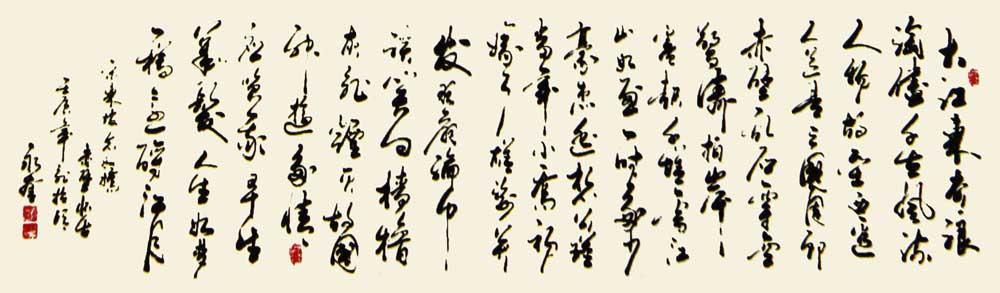 大江東去浪
淘盡千古風流
人物故壘西邊
人道是三國周郎
赤壁亂石穿空
驚濤拍岸
捲起千堆雪江
山如畫一時多少
豪杰遙想公瑾
當年小喬初
嫁了雄姿英
發羽扇綸巾
談笑間檣櫓
灰飛煙滅故國
神遊多情
應笑我早生
華髮人生如夢
一樽還酹江月
宋東坡念奴嬌
赤壁懷古
年
永